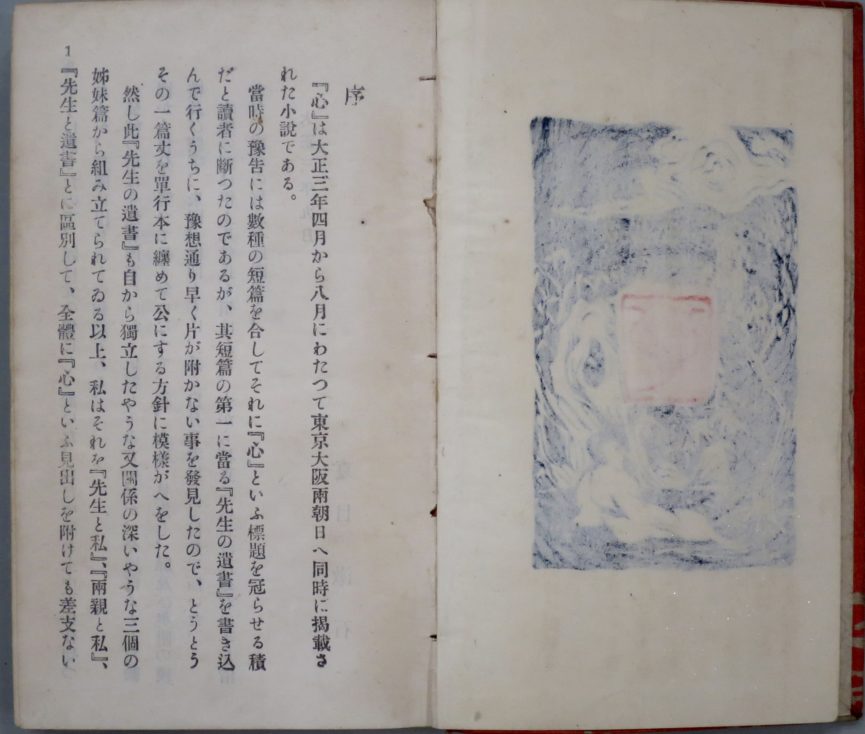 序
『心』は大正三年四月から八月にわたつて東京大阪兩朝日へ同時に揭載さ
れた小說である。
當時の豫告には數種の短篇を合してそれに『心』といふ標題を冠らせる積
だと讀者に斷つたのであるが、其短篇の第一に當る『先生の遺書』を書き込
んで行くうちに、豫想通り早く片が附かない事を發見したので、とうとう
その一篇丈を單行本に纒めて公にする方針に模樣がへをした。
然し此『先生の遺書』も自から獨立したやうな又關係の深いやうな三個の
姊妹篇から組み立てられてゐる以上、私はそれを『先生と私』、『兩親と私』、
『先生と遺書』とに區別して、全體に『心』といふ見出しを附けても差支ない
1